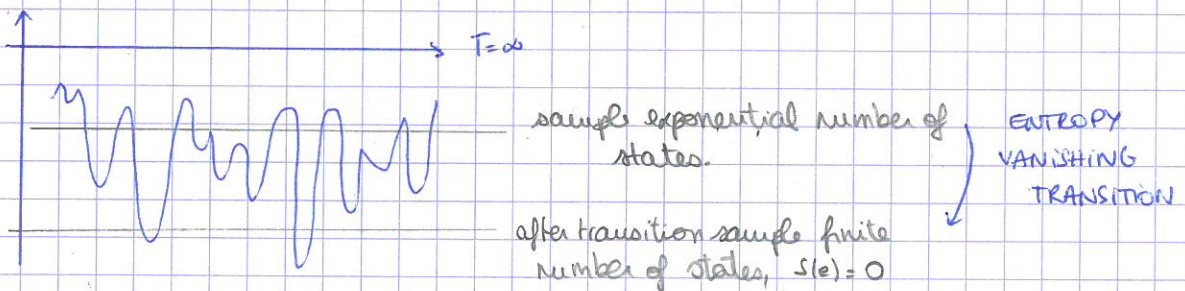 T=∞
sample exponential number of
states.
ENTROPY
VANISHING
TRANSITION
after transition sample finite
number of states, s(e) = 0